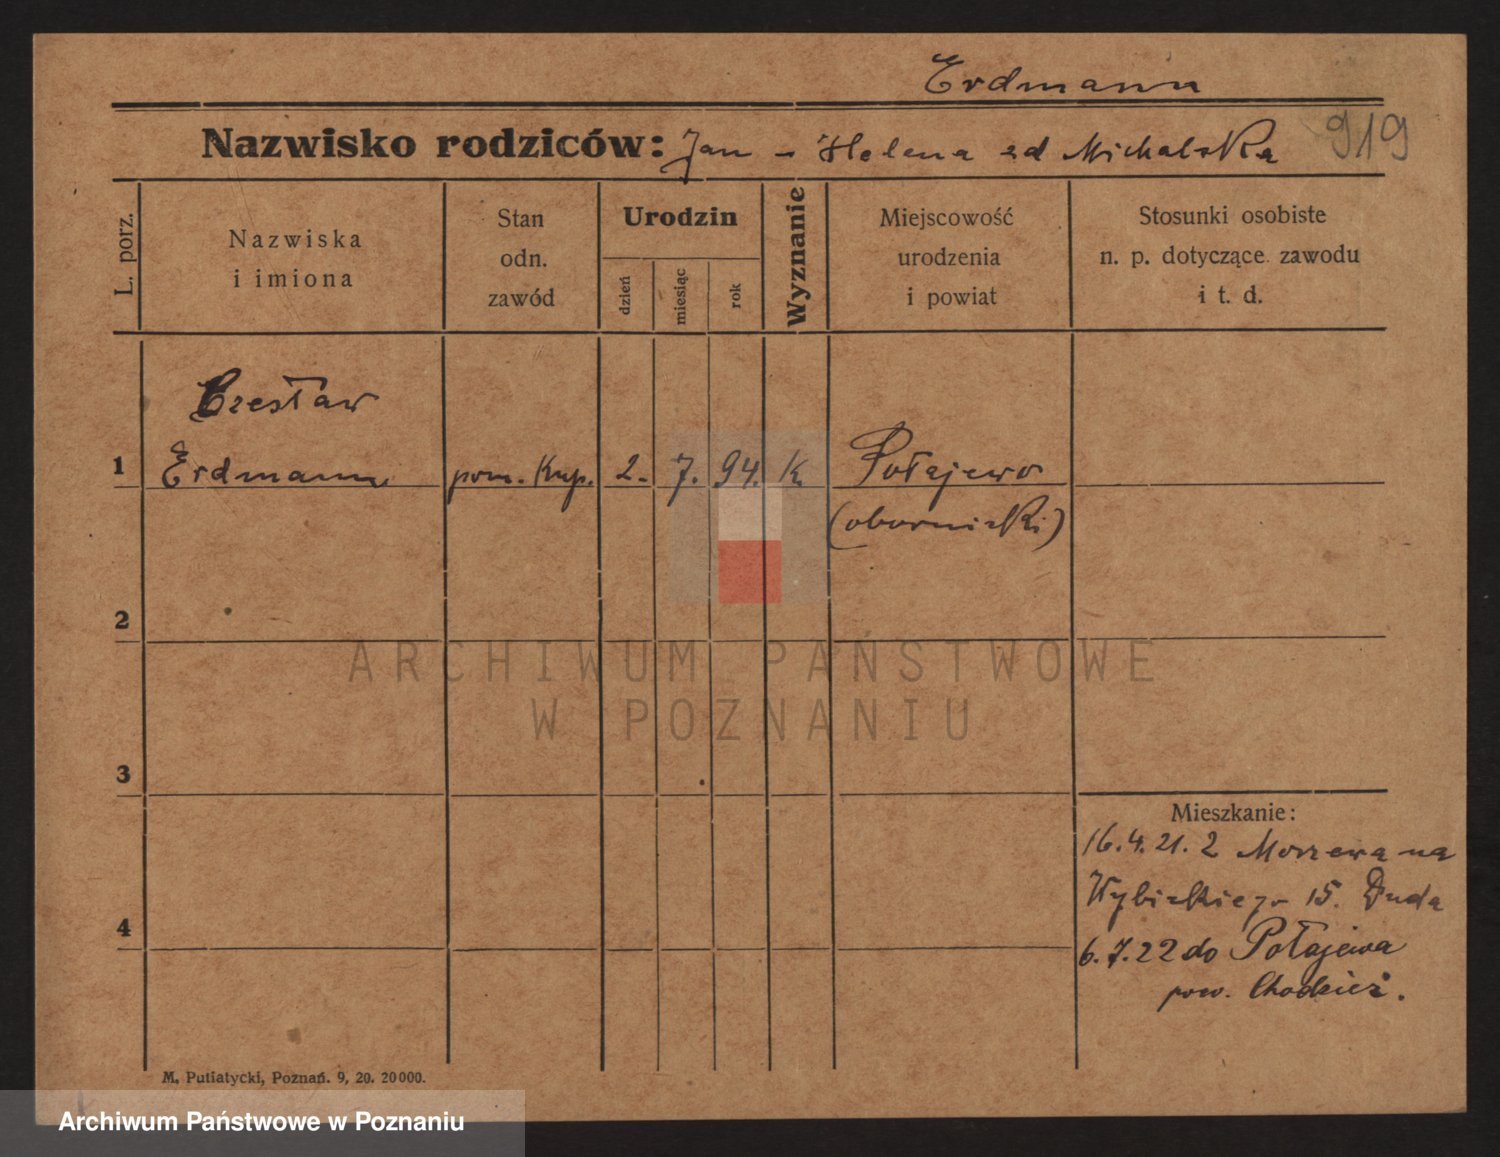 Erdmann
Nazwisko rodziców: Jan - Helena zd Michalska 919
L. porz.
Nazwiska
i imiona
Stan
odn.
zawód
Urodzin
dzień
miesiąc
rok
Wyznanie
Miejscowość
urodzenia
i powiat
Stosunki osobiste
n. p. dotyczące zawodu
i t. d.
Czesław
1 Erdmann pom. Kup. 2. 7. 94. K Połajewo
(obornicki)
2
ARCHIWUM PAŃSTWOWE
W POZNANIU
3
Mieszkanie:
16.4.21. z Morzewa na
Wybickiego 15. Duda
4
6.7.22 do Połajewa
pow. Chodzież.
M. Putiatycki, Poznań. 9, 20. 20000.
Archiwum Państwowe w Poznaniu